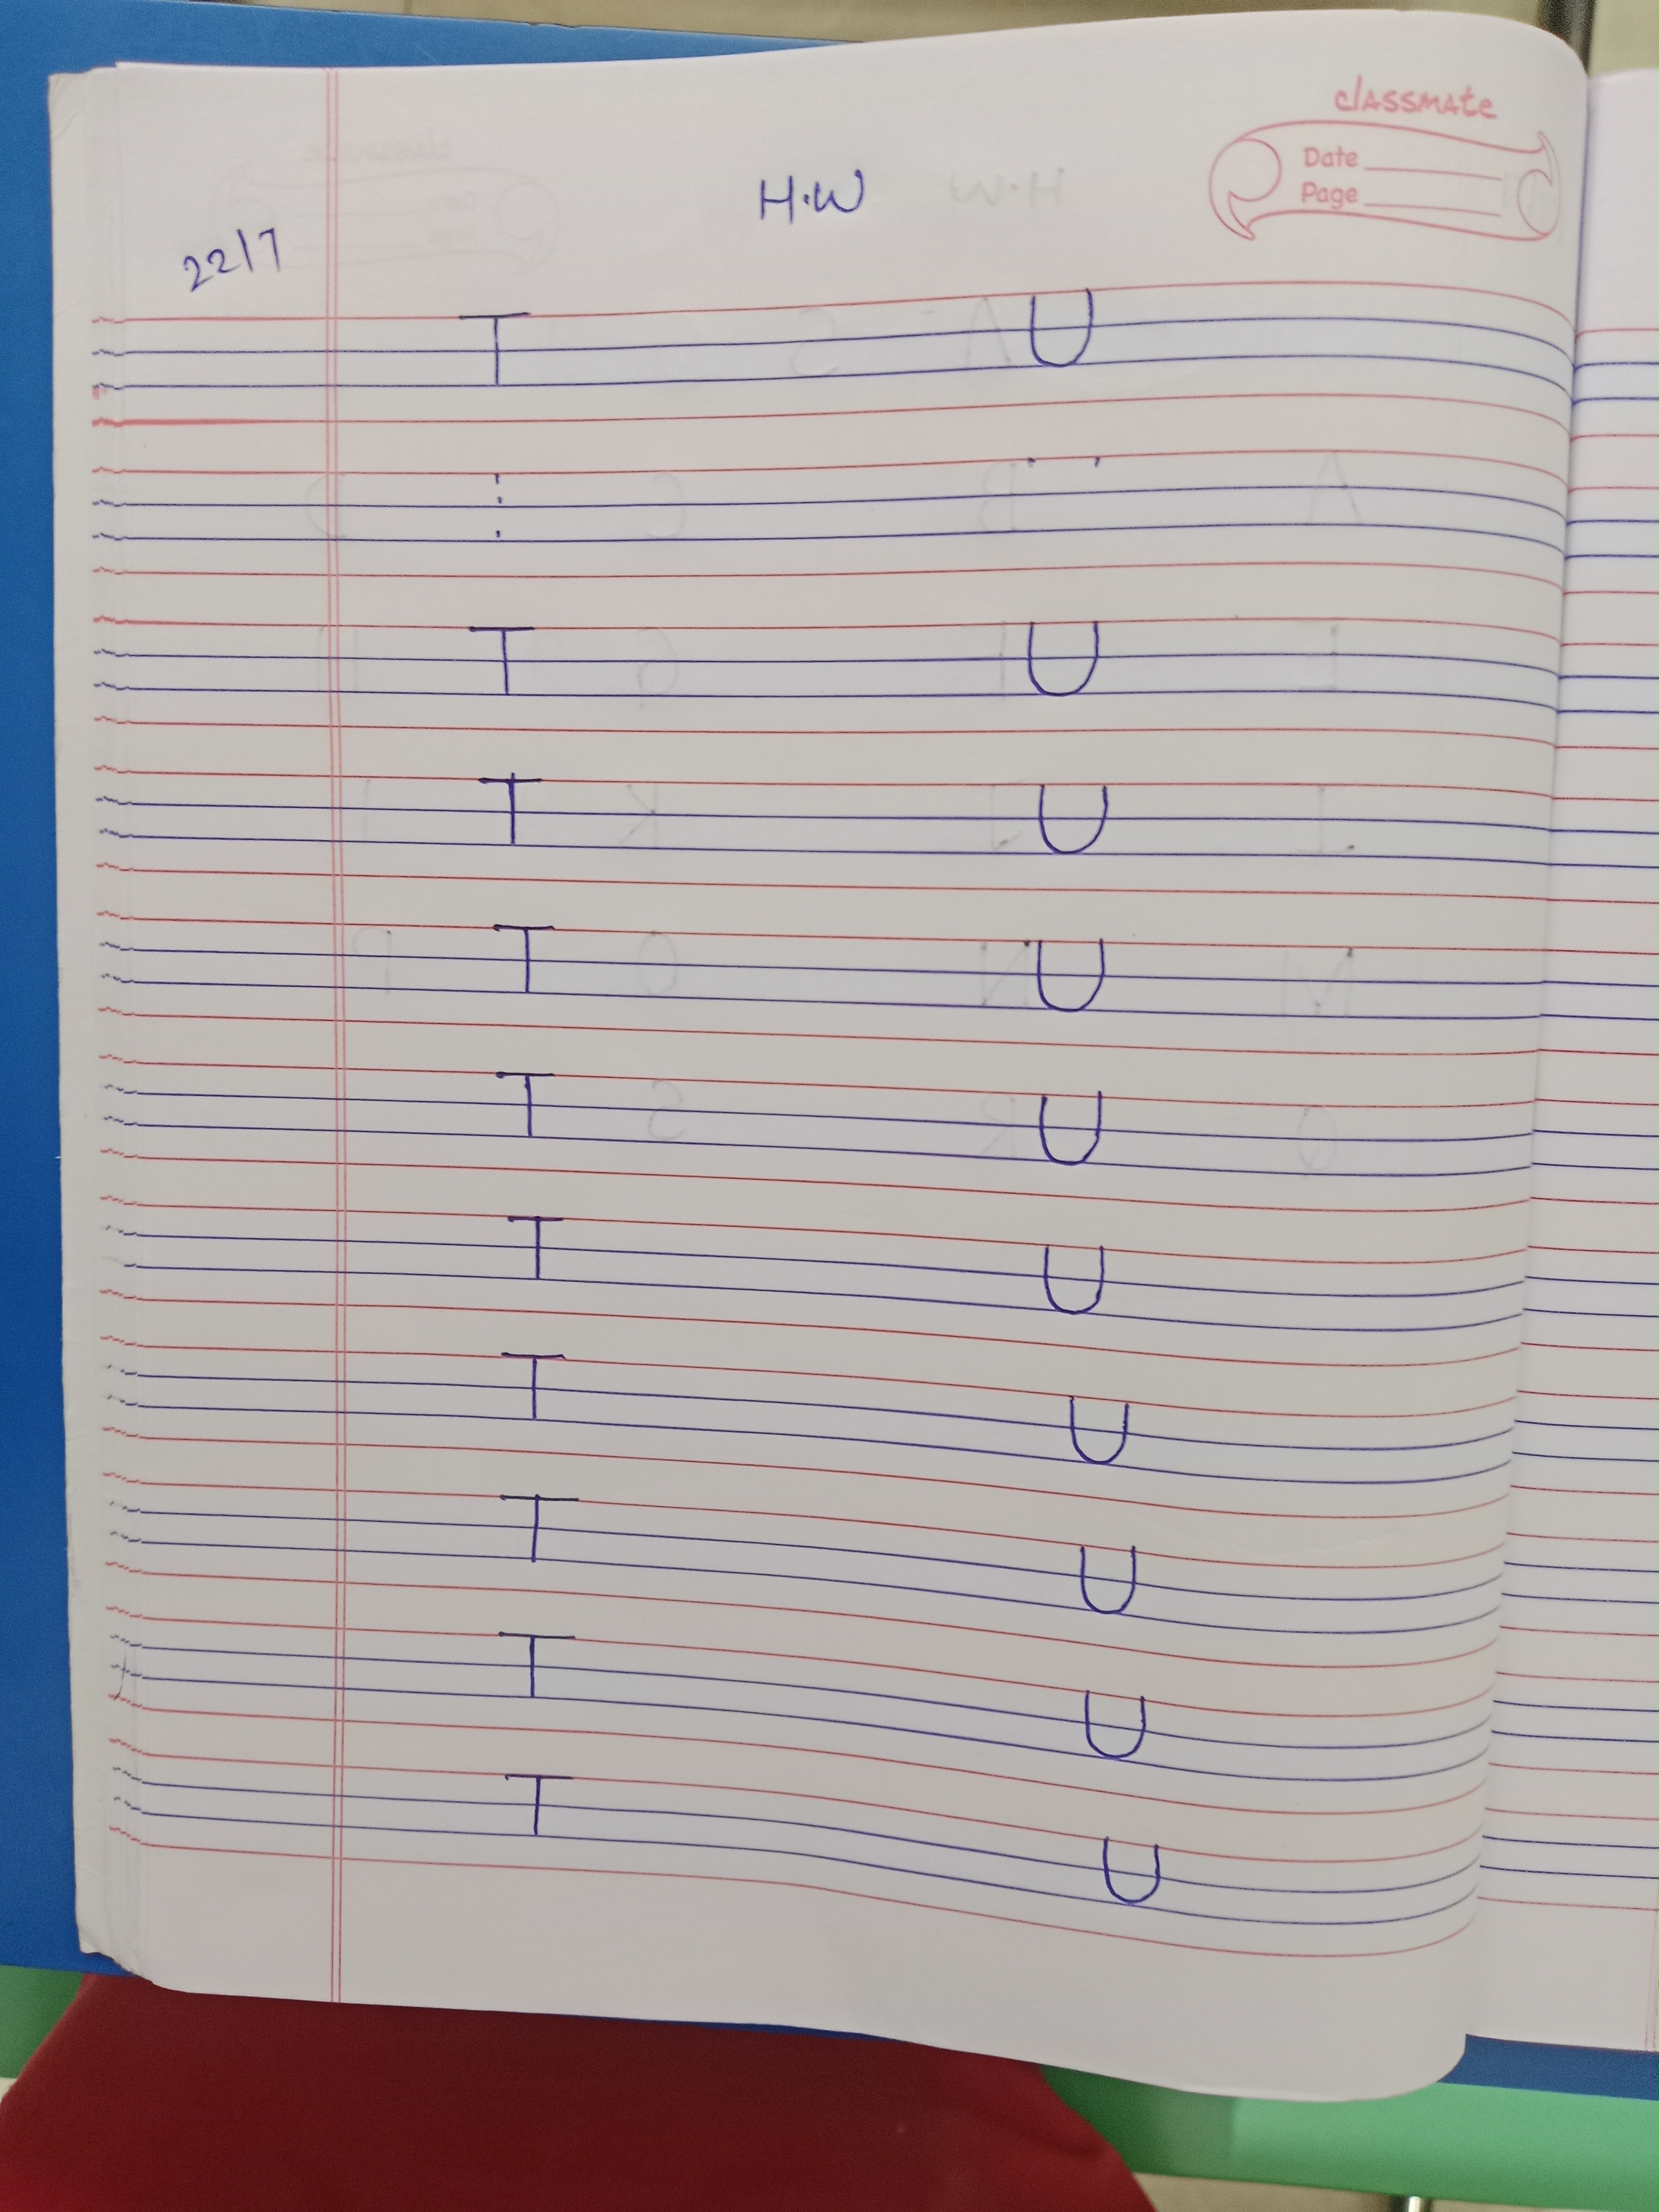 classmate
Date
Page
H.W
22/7
T U
T U
T U
T U
T U
T U
T U
T U
T U
T U